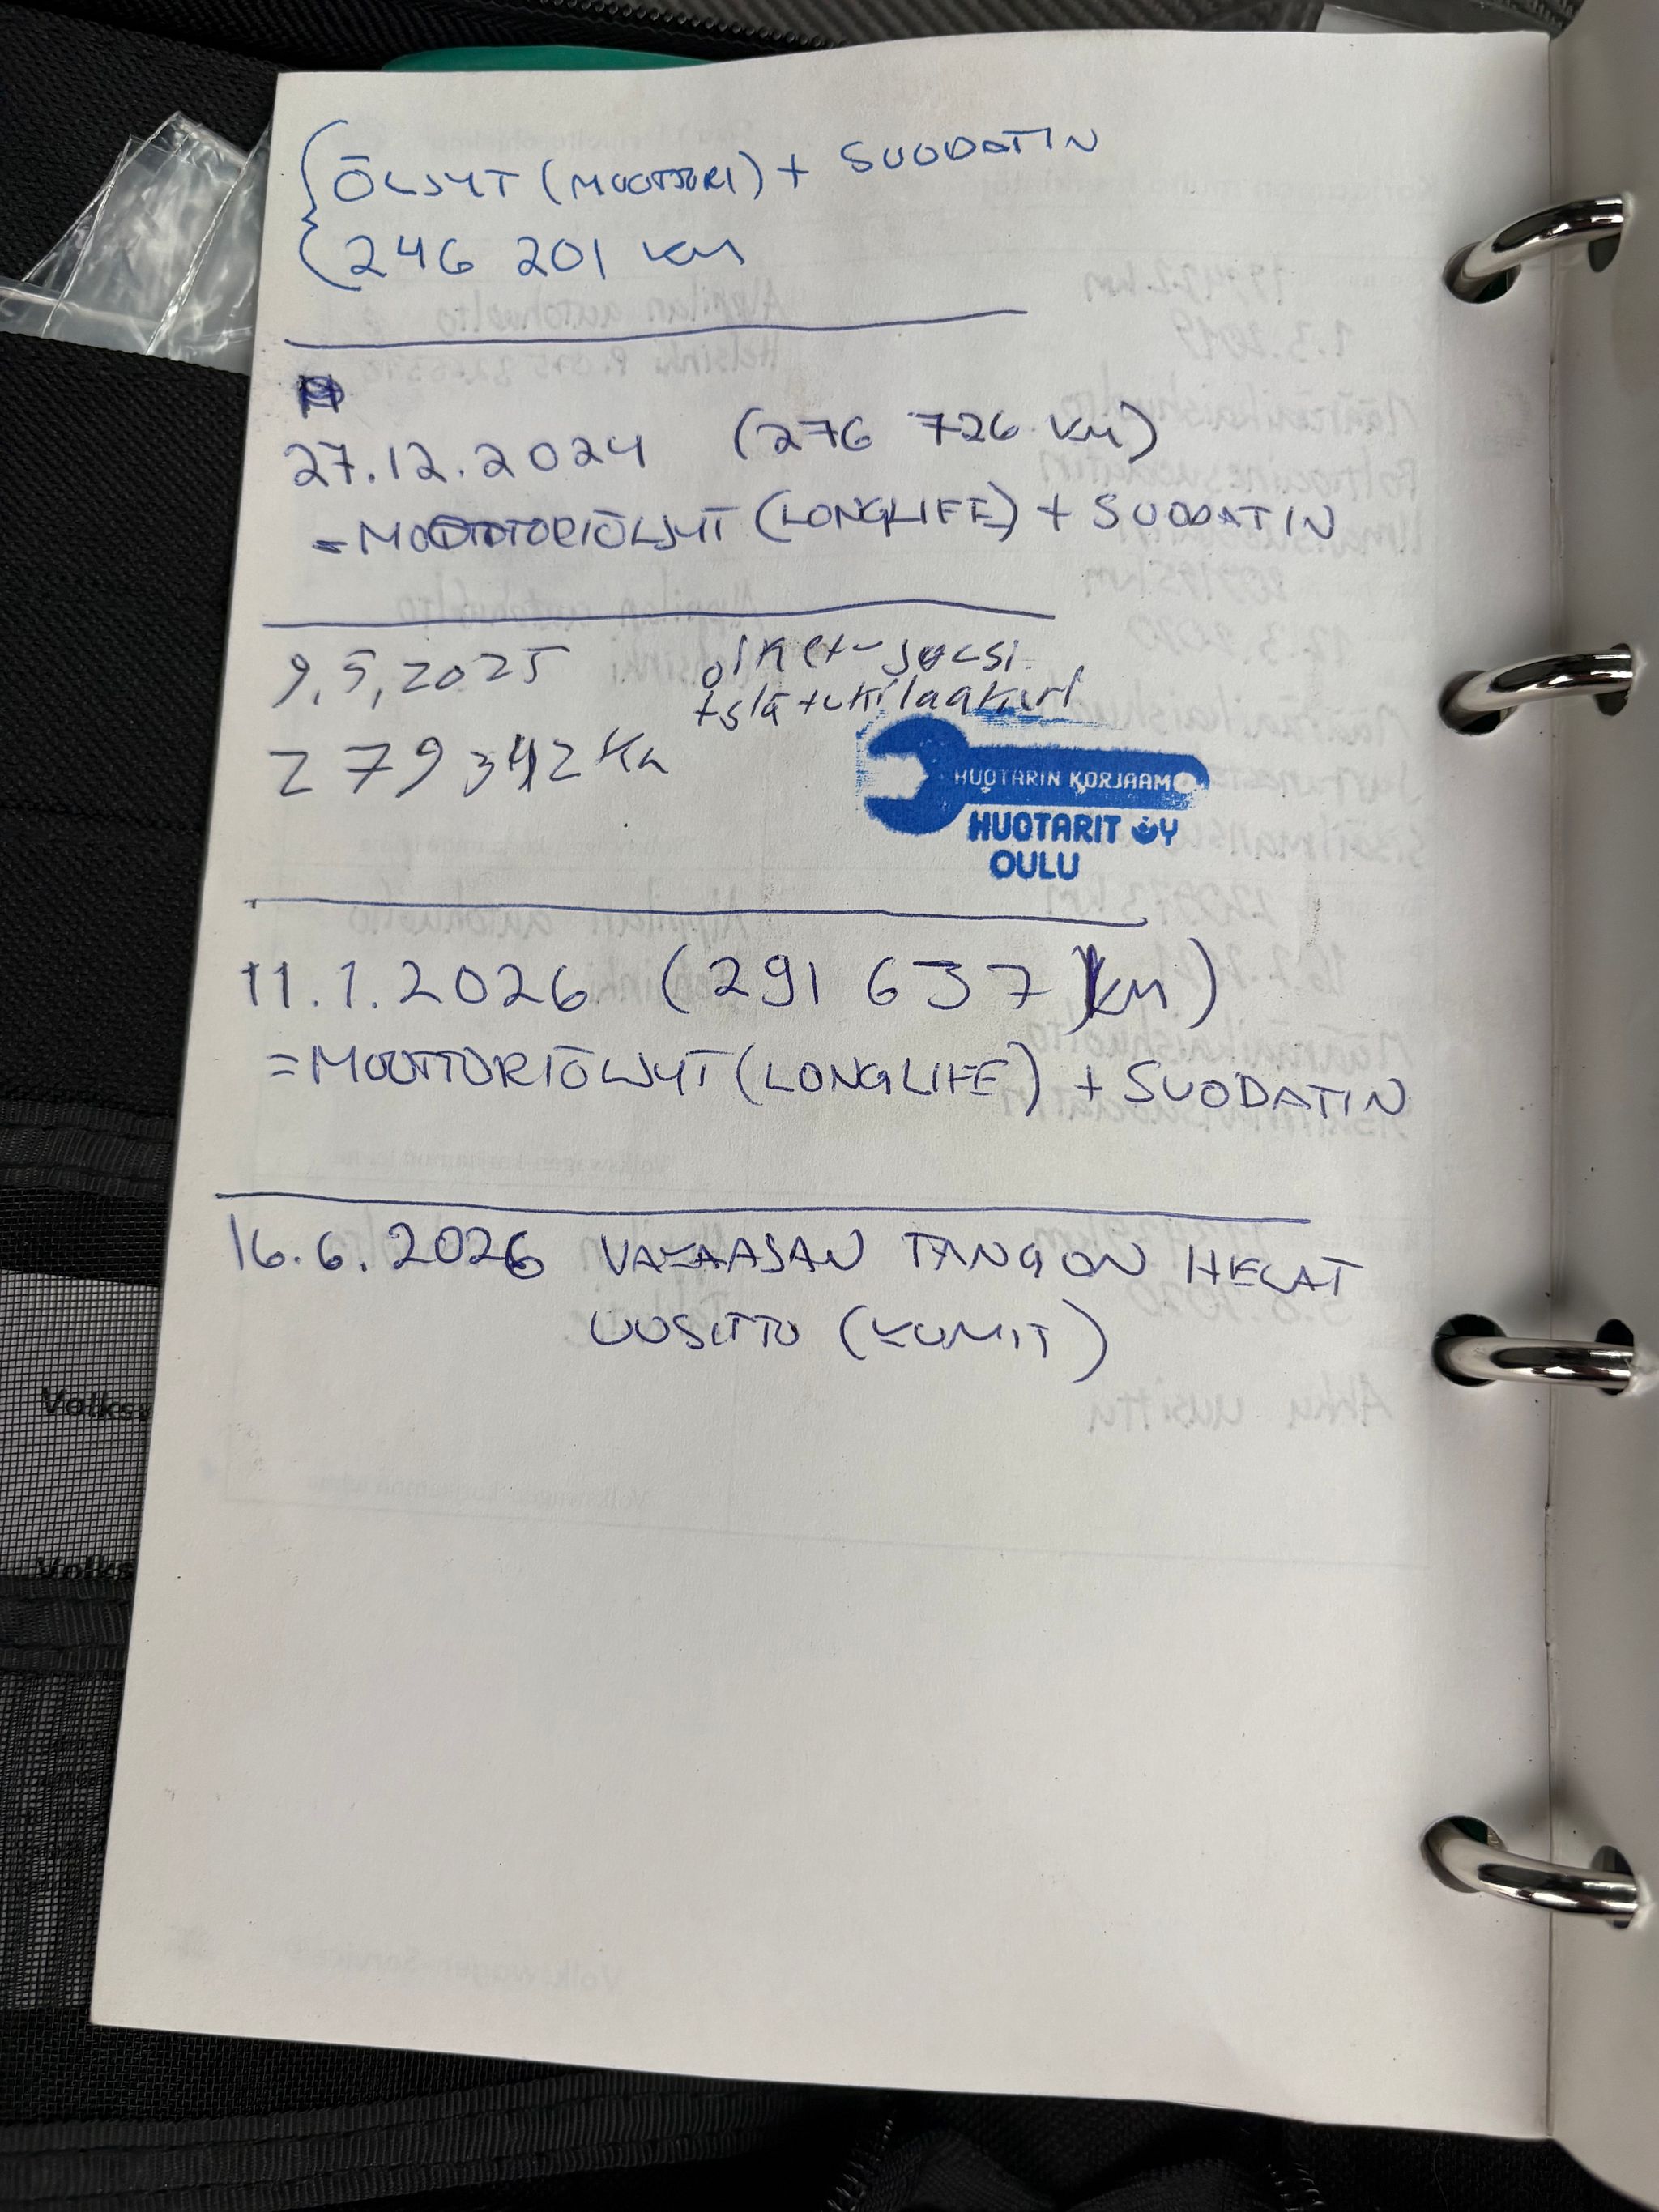 ÖLJYT (MOOTTORI) + SUODATIN
246 201 km
27.12.2024 (276 726 km)
= MOOTTORIÖLJYT (LONGLIFE) + SUODATIN
9.5.2025 oik etu-jousi
+ylätukilaakeri
279 342 km
HUOTARIN KORJAAMO
HUOTARIT OY
OULU
11.1.2026 (291 637 km)
= MOOTTORIÖLJYT (LONGLIFE) + SUODATIN
16.6.2026 VAKAAJAN TANGON HELAT
UUSITTU (KUMIT)
Volksw
Volks